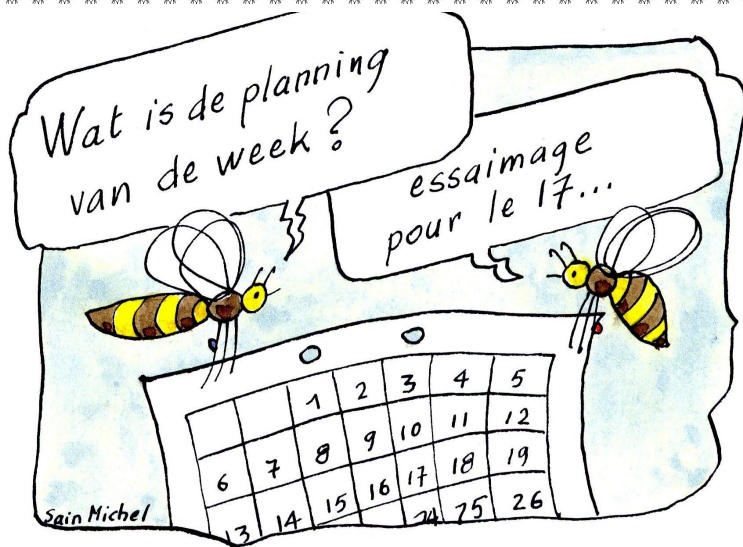 Wat is de planning
van de week?
essaimage
pour le 17...
1 2 3 4 5
6 7 8 9 10 11 12
13 14 15 16 17 18 19
24 25 26
Sain Michel